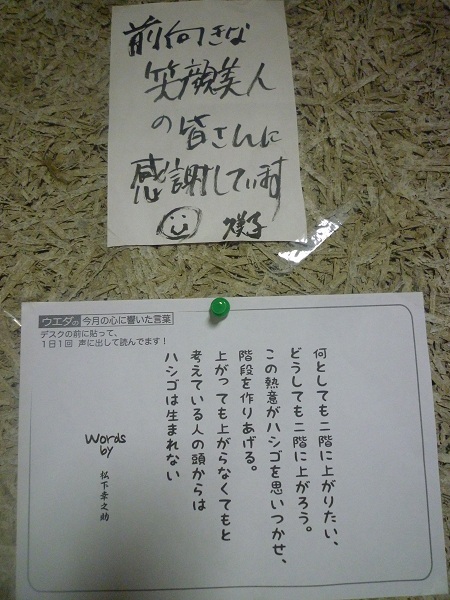 前向きな
笑顔美人
の皆さんに
感謝しています
ウエダの 今月の心に響いた言葉
デスクの前に貼って、
1日1回 声に出して読んでます！
何としても二階に上がりたい、
どうしても二階に上がろう。
この熱意がハシゴを思いつかせ、
階段を作りあげる。
上がっても上がらなくてもと
考えている人の頭からは
ハシゴは生まれない
Words
by
松下幸之助